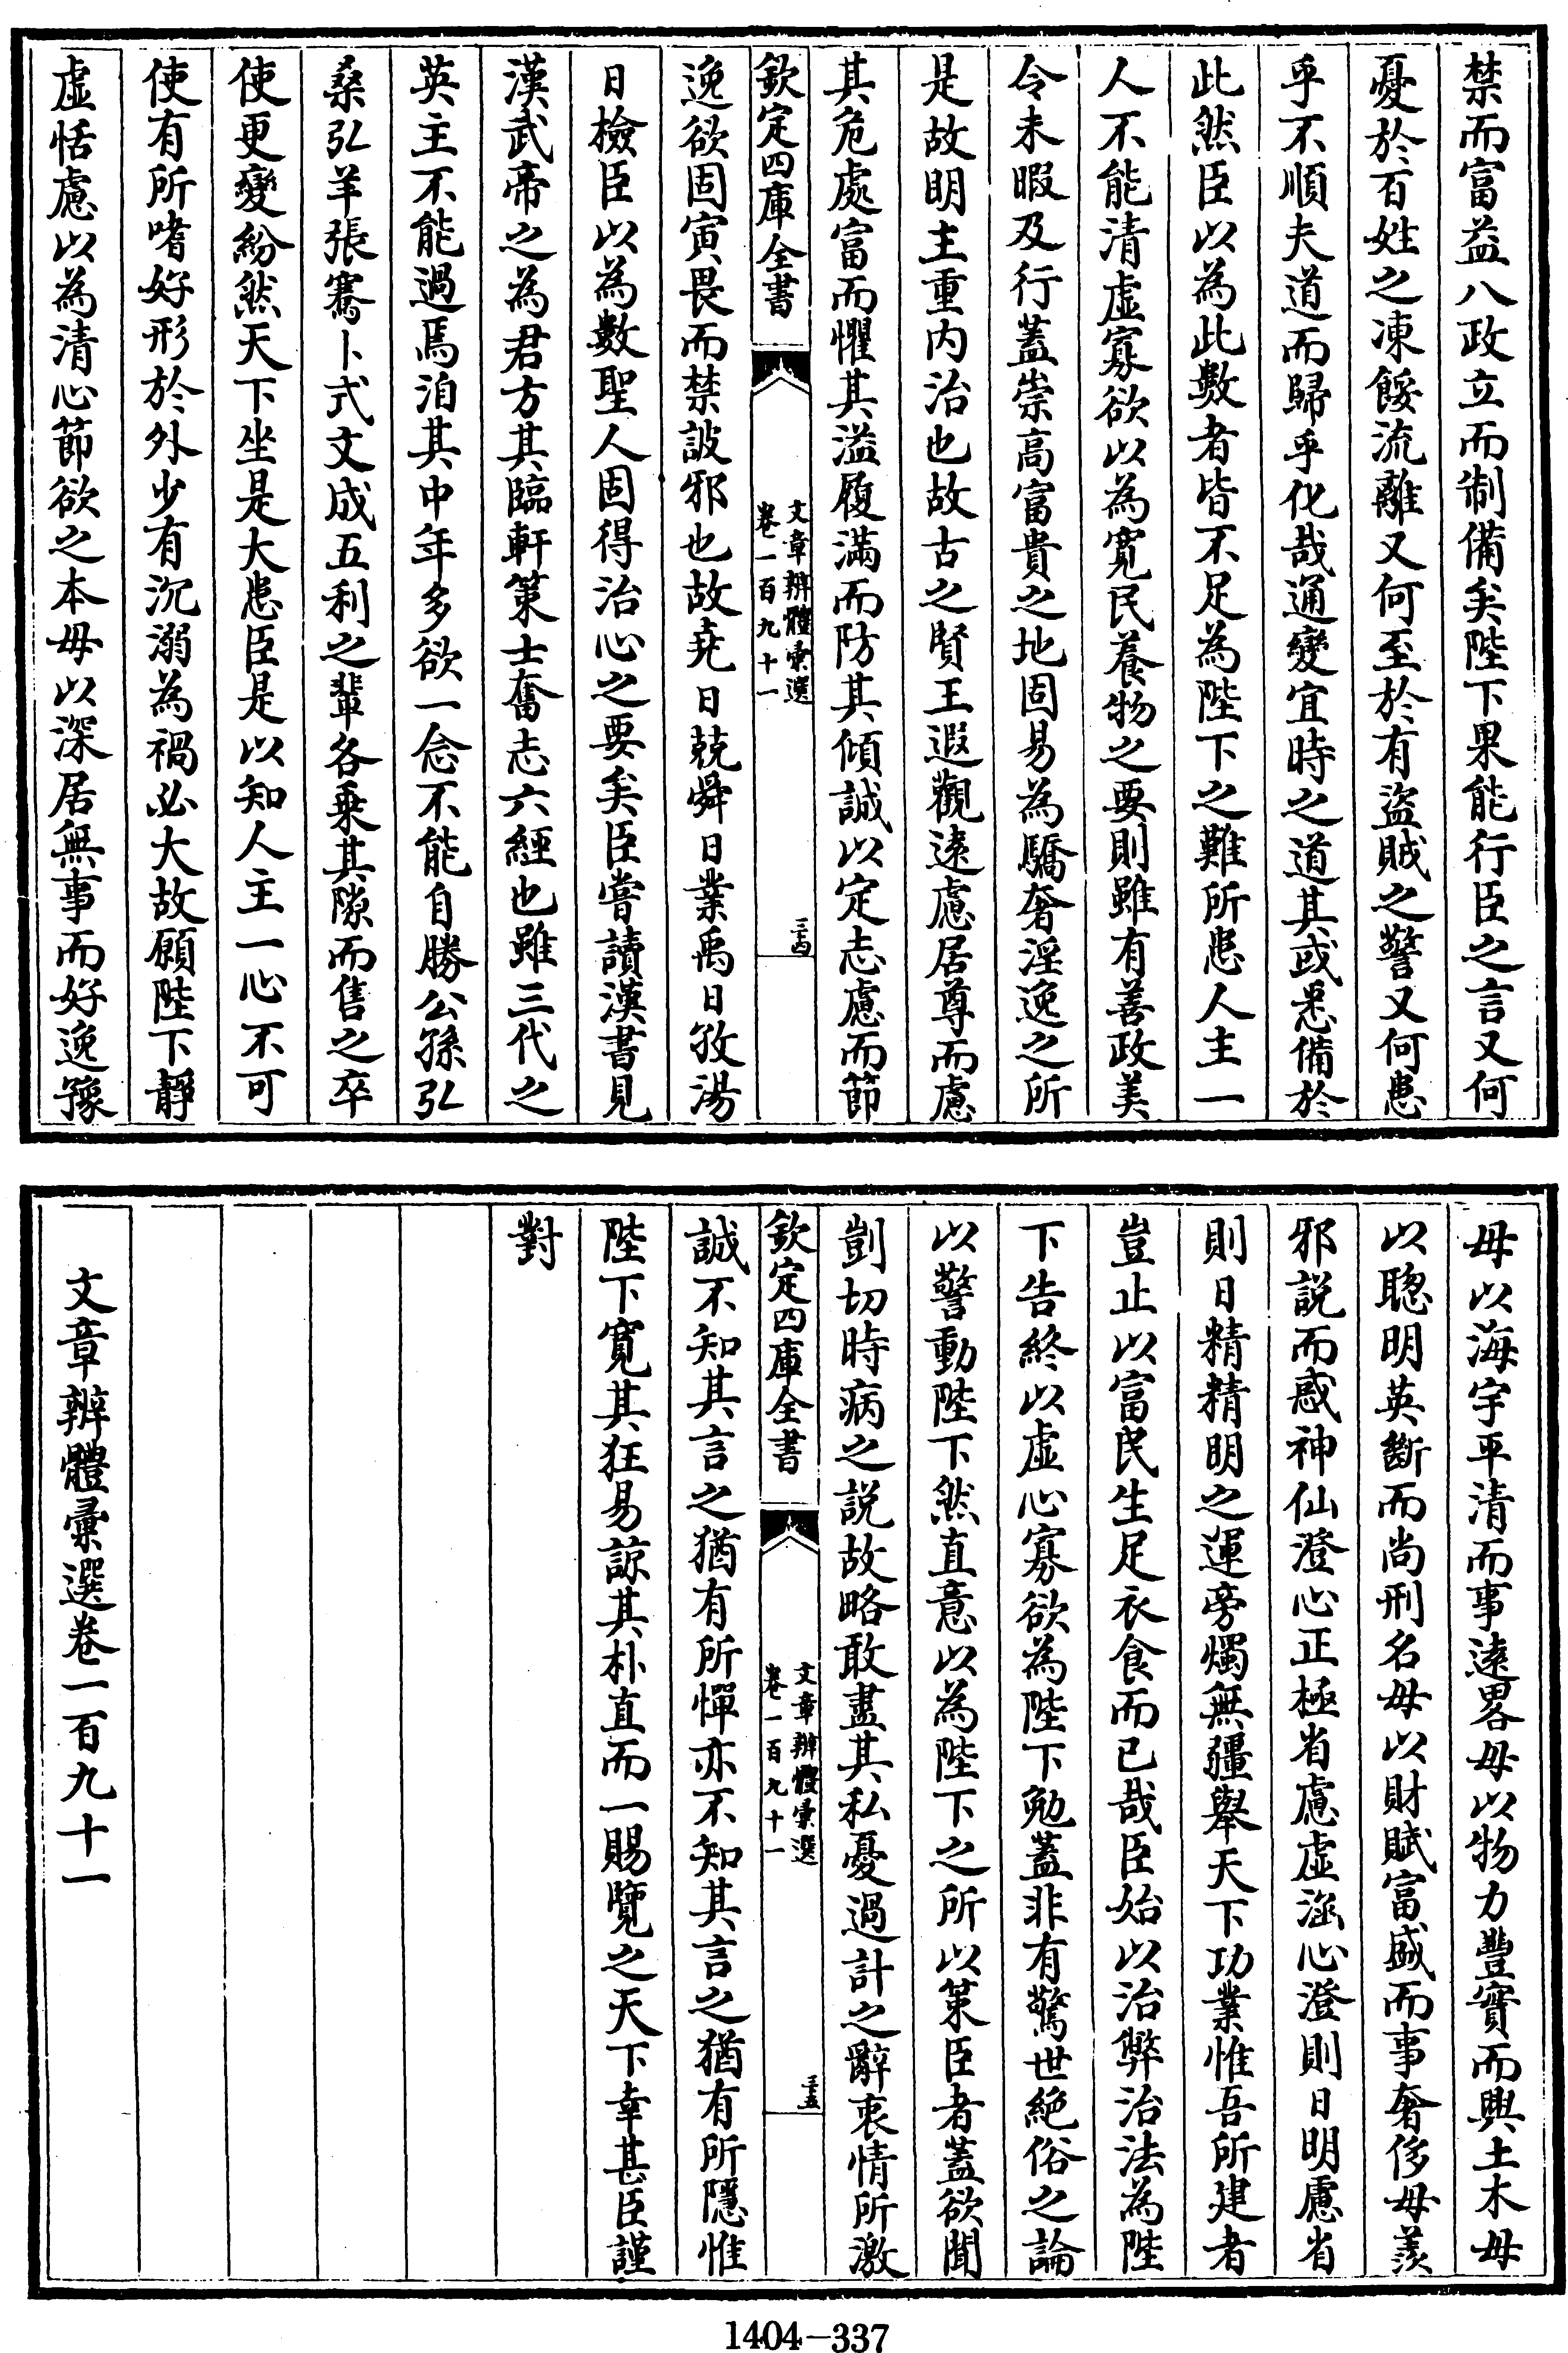 禁而富益八政立而制備矣陛下果能行臣之言又何
憂於百姓之凍餒流離又何至於有盜賊之警又何患
乎不順夫道而歸乎化哉通變宜時之道其或悉備於
此然臣以為此數者皆不足為陛下之難所患人主一
人不能清虛寡欲以為寛民養物之要則雖有善政美
令未暇及行蓋崇高富貴之地固易為驕奢淫逸之所
是故明主重内治也故古之賢王遐觀遠慮居尊而慮
其危處富而懼其溢履滿而防其傾誠以定志慮而節
欽定四庫全書
文章辨體彙選
卷一百九十一
三十四
逸欲固寅畏而禁詖邪也故堯曰兢舜曰業禹曰孜湯
曰檢臣以為數聖人固得治心之要矣臣嘗讀漢書見
漢武帝之為君方其臨軒策士奮志六經也雖三代之
英主不能過焉洎其中年多欲一念不能自勝公孫弘
桑弘羊張騫卜式文成五利之輩各乘其隙而售之卒
使更變紛然天下坐是大患臣是以知人主一心不可
使有所嗜好形於外少有沉溺為禍必大故願陛下靜
虛恬慮以為清心節欲之本毋以深居無事而好逸豫
毋以海宇平清而事遠畧毋以物力豐實而興土木毋
以聰明英斷而尚刑名毋以財賦富盛而事奢侈毋羨
邪說而惑神仙澄心正極省慮虛涵心澄則日明慮省
則日精精明之運旁燭無疆舉天下功業惟吾所建者
豈止以富民生足衣食而已哉臣始以治弊治法為陛
下告終以虛心寡欲為陛下勉蓋非有驚世絶俗之論
以警動陛下然直意以為陛下之所以策臣者蓋欲聞
剴切時病之說故略敢盡其私憂過計之辭衷情所激
欽定四庫全書
文章辨體彙選
卷一百九十一
三十五
誠不知其言之猶有所憚亦不知其言之猶有所隱惟
陛下寛其狂易諒其朴直而一賜覽之天下幸甚臣謹
對
文章辨體彙選卷一百九十一
1404-337